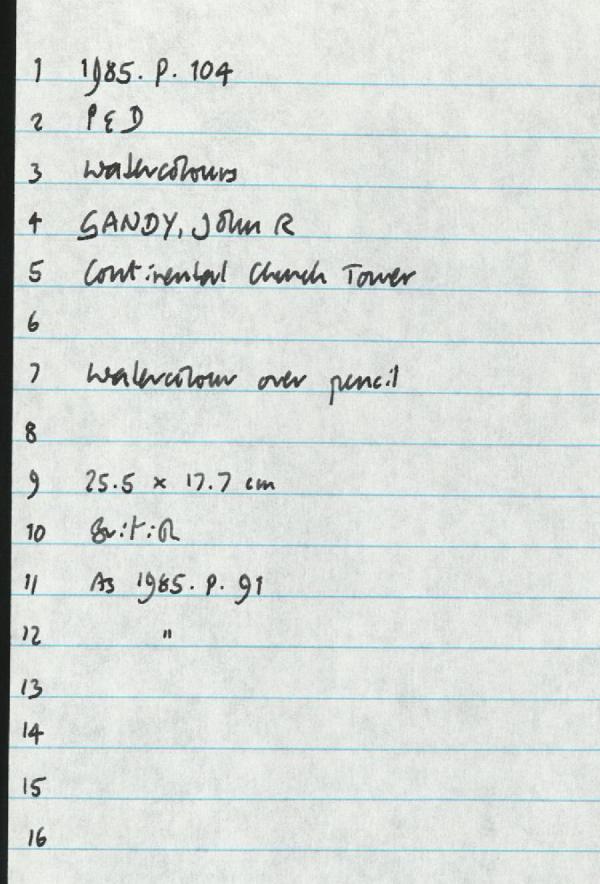 1 1985. P. 104
2 P & D
3 Watercolours
4 SANDY, John R
5 Continental Church Tower
6
7 Watercolour over pencil
8
9 25.5 x 17.7 cm
10 British
11 As 1985. P. 91
12 "
13
14
15
16